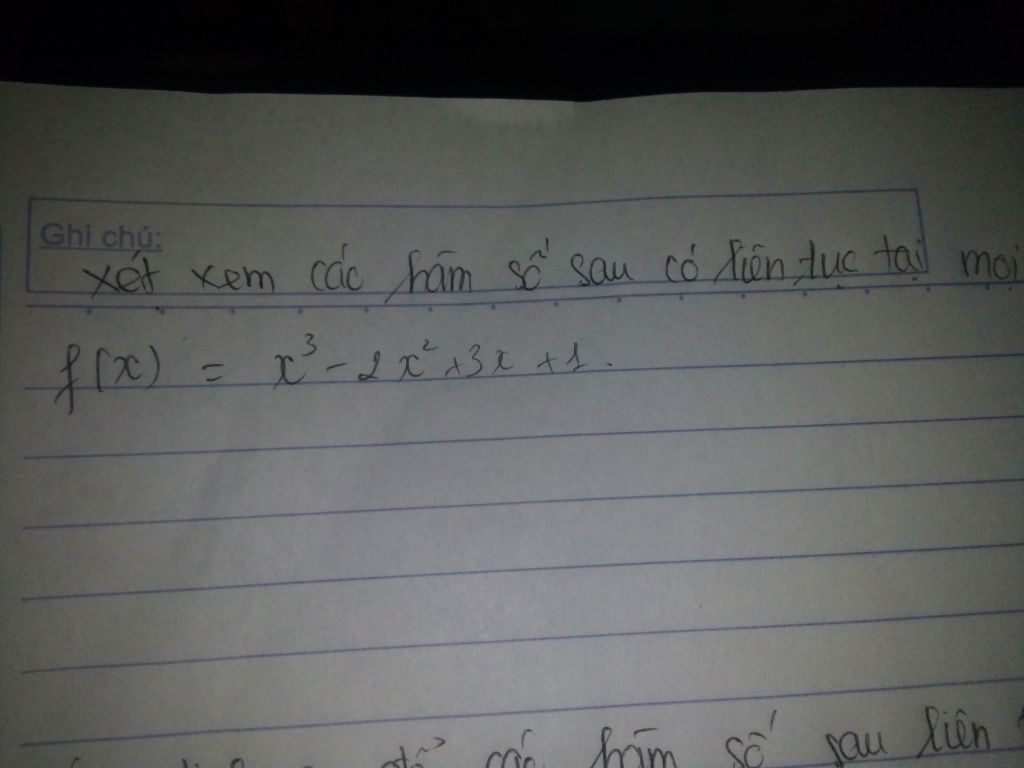 Ghi chú:
xét xem các hàm số sau có liên tục tại mọi
f(x) = x³ - 2x² + 3x + 1.
các hàm số sau liên